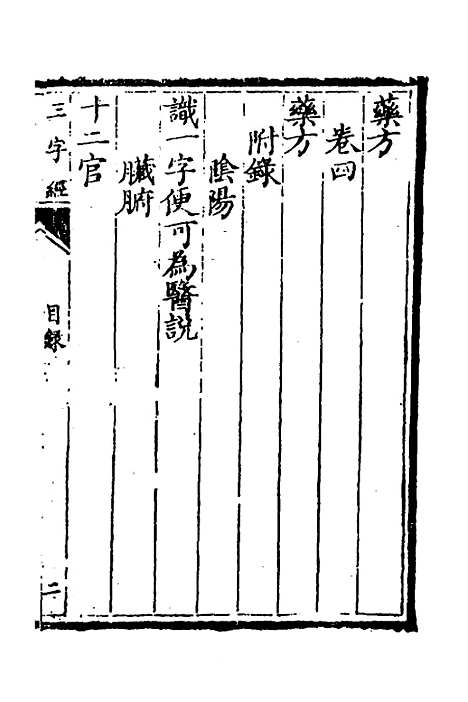 藥方
卷四
藥方
附錄
陰陽
識一字便可為醫說
臟腑
十二官
三字經
目錄
二